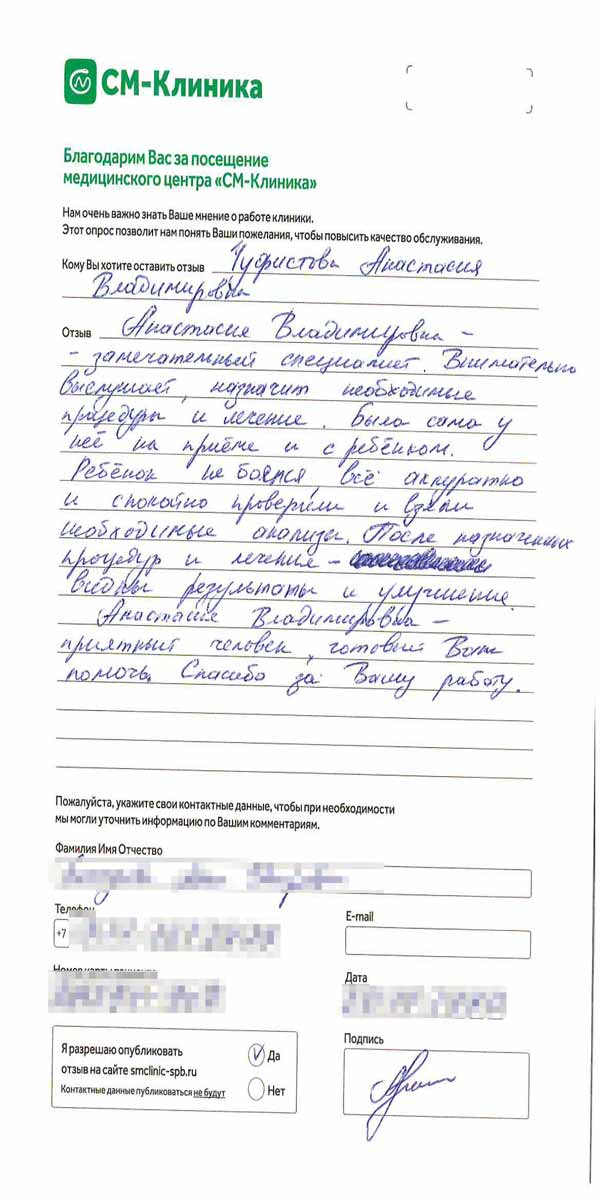 СМ-Клиника
Благодарим Вас за посещение
медицинского центра «СМ-Клиника»
Нам очень важно знать Ваше мнение о работе клиники.
Этот опрос позволит нам понять Ваши пожелания, чтобы повысить качество обслуживания.
Кому Вы хотите оставить отзыв Чуфистова Анастасия
Владимировна
Отзыв Анастасия Владимировна -
- замечательный специалист. Внимательно
выслушает, назначит необходимые
процедуры и лечение. Была сама у
неё на приёме и с ребёнком.
Ребёнок не боялся, всё аккуратно
и спокойно проверили и взяли
необходимые анализы. После назначенных
процедур и лечение -
видны результаты и улучшение.
Анастасия Владимировна -
приятный человек, готовый Вам
помочь. Спасибо за Вашу работу.
Пожалуйста, укажите свои контактные данные, чтобы при необходимости
мы могли уточнить информацию по Вашим комментариям.
Фамилия Имя Отчество
Телефон
E-mail
+7
Номер карты пациента
Дата
Подпись
Я разрешаю опубликовать
отзыв на сайте smclinic-spb.ru
Контактные данные публиковаться не будут
Да
Нет